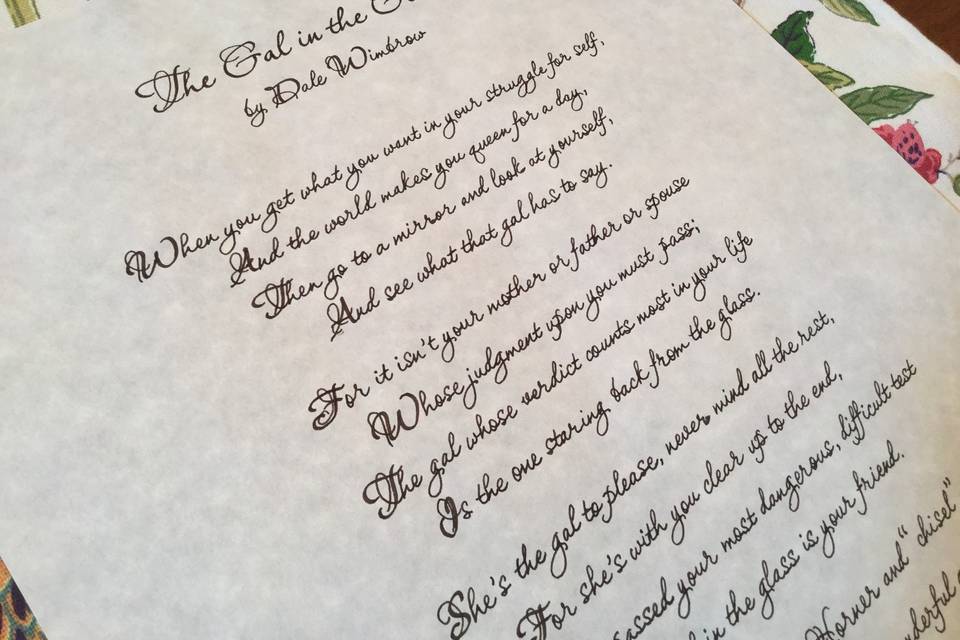 The Gal in the
by Dale Wimbrow
When you get what you want in your struggle for self,
And the world makes you queen for a day,
Then go to a mirror and look at yourself,
And see what that gal has to say.
For it isn't your mother or father or spouse
Whose judgment upon you must pass;
The gal whose verdict counts most in your life
Is the one staring back from the glass.
She's the gal to please, never mind all the rest,
For she's with you clear up to the end,
passed your most dangerous, difficult test
in the glass is your friend.
Horner and "chisel"